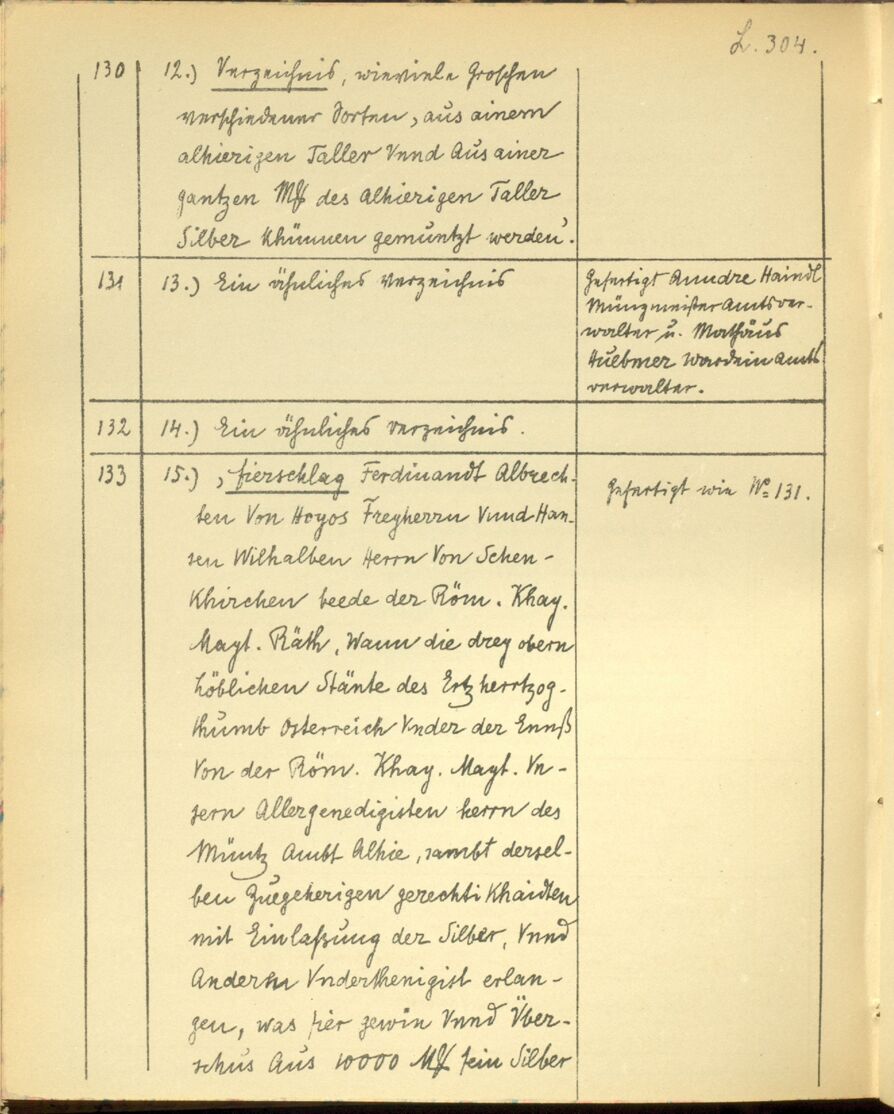 L. 304.
130 12.) Verzeichnis, wieviele Groschen
verschiedener Sorten, aus ainem
alhierigen Taller Vnnd Aus ainer
gantzen M des Alhierigen Taller
Silber khünnen gemüntzt werden.
131 13.) Ein ähnliches Verzeichnis
Gefertigt Anndre Haindl
Münzmeister Amtsver-
walter u. Mathäus
Huebmer Wardein Amts
verwalter.
132 14.) Ein ähnliches Verzeichnis.
133 15.) fierschlag Ferdinandt Albrech-
ten Von Hoyos Freyherrn Vnnd Han-
sen Wilhalben Herrn Von Schen-
khirchen beede der Röm. Khay.
Mayt. Räth, Wann die drey obern
höblichen Stänte des Ertzherrtzog-
thumb Osterreich Vnder der Ennß
Von der Röm. Khay. Mayt. Vn-
sern Allergenedigisten herrn des
Müntz Ambt Alhie, sambt dersel-
ben Zuegeherigen gerechtikhaidten
mit Einlaßung der Silber, Vnnd
Andern Vnderthenigist erlan-
gen, was fier gewin Vnnd Über-
schus Aus 10000 M fein Silber
Gefertigt wie No 131.